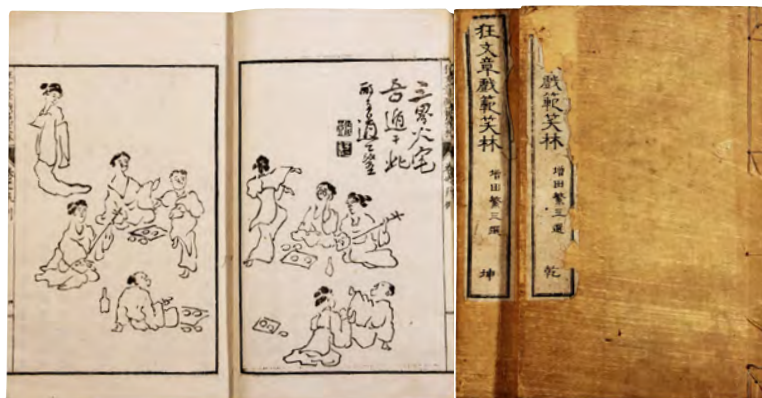 三界火宅
吾遁于此
狂文章戲範笑林
增田繁三選
坤
戲範笑林
增田繁三選
乾